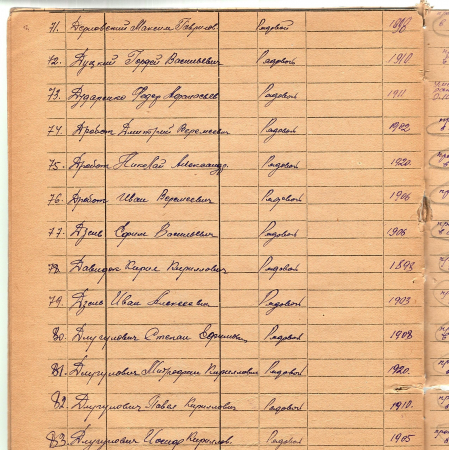 71. Дерновский Максим Гаврилов Рядовой
72. Дуцкий Гордей Васильевич Рядовой 1910
73. Дударенко Федор Афанасьев Рядовой 1911
74. Дробот Дмитрий Еремеевич Рядовой 1902
75. Дробот Николай Александр. Рядовой 1920
76. Дробот Иван Еремеевич Рядовой 1906
77. Дзив Ефрем Васильевич Рядовой 1906
78. Давидок Кирил Кириллович Рядовой 1893
79. Дзив Иван Алексеевич Рядовой 1903
80. Длугулович Степан Рядовой 1908
81. Длугулович Митрофан Кириллович Рядовой 1920
82. Длугулович Павел Кириллович Рядовой 1910
83. Длугулович Иосиф Кириллов. Рядовой 1905